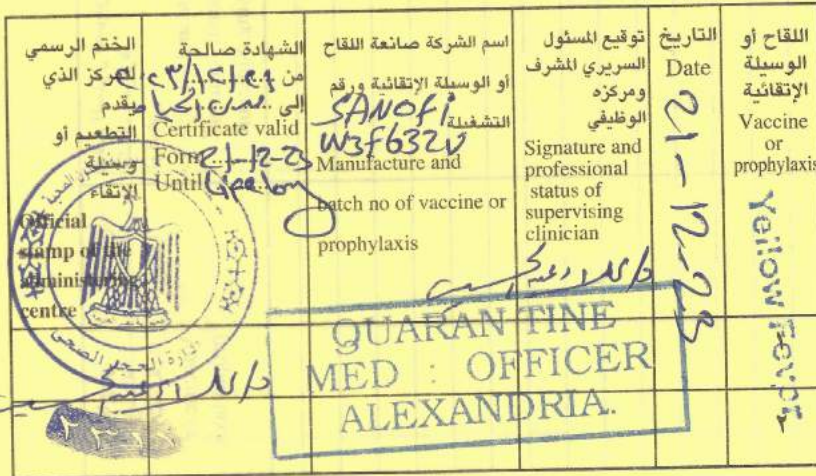 اللقاح أو
الوسيلة
الإتقائية
Vaccine
or
prophylaxis
Yellow Fever
التاريخ
Date
21-12-23
توقيع المسئول
السريري المشرف
ومركزه
الوظيفي
Signature and
professional
status of
supervising
clinician
اسم الشركة صانعة اللقاح
أو الوسيلة الإتقائية ورقم
التشغيلة
SANOFI
W3F632V
Manufacture and
batch no of vaccine or
prophylaxis
الشهادة صالحة
من
إلى مدى الحياة
Certificate valid
Form 21-12-23
Until
الختم الرسمي
للمركز الذي
يقدم
التطعيم أو
وسيلة
الإتقاء
Official
stamp of the
administering
centre
إدارة الحجر الصحى
QUARANTINE
MED : OFFICER
ALEXANDRIA.